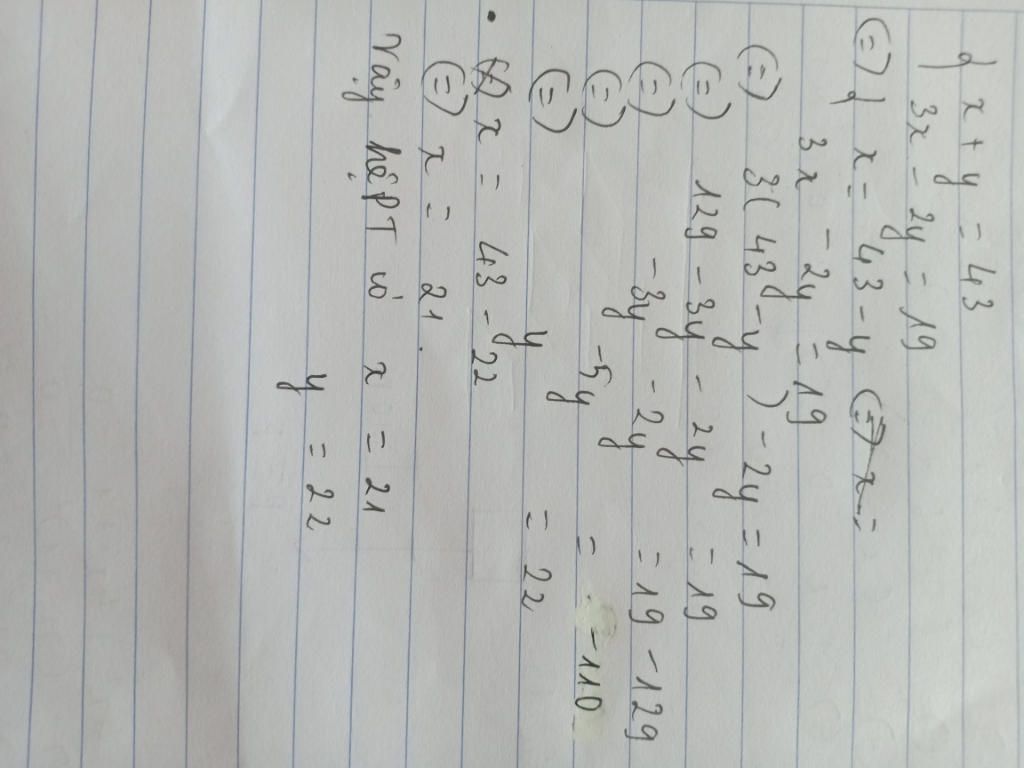 { x + y = 43
3x - 2y = 19
(=) { x = 43 - y (=) x =
3x - 2y = 19
(=) 3(43 - y) - 2y = 19
(=) 129 - 3y - 2y = 19
(=) -3y - 2y = 19 - 129
(=) -5y = -110
(=) y = 22
x = 43 - 22
(=) x = 21.
Vậy hệ PT có x = 21
y = 22